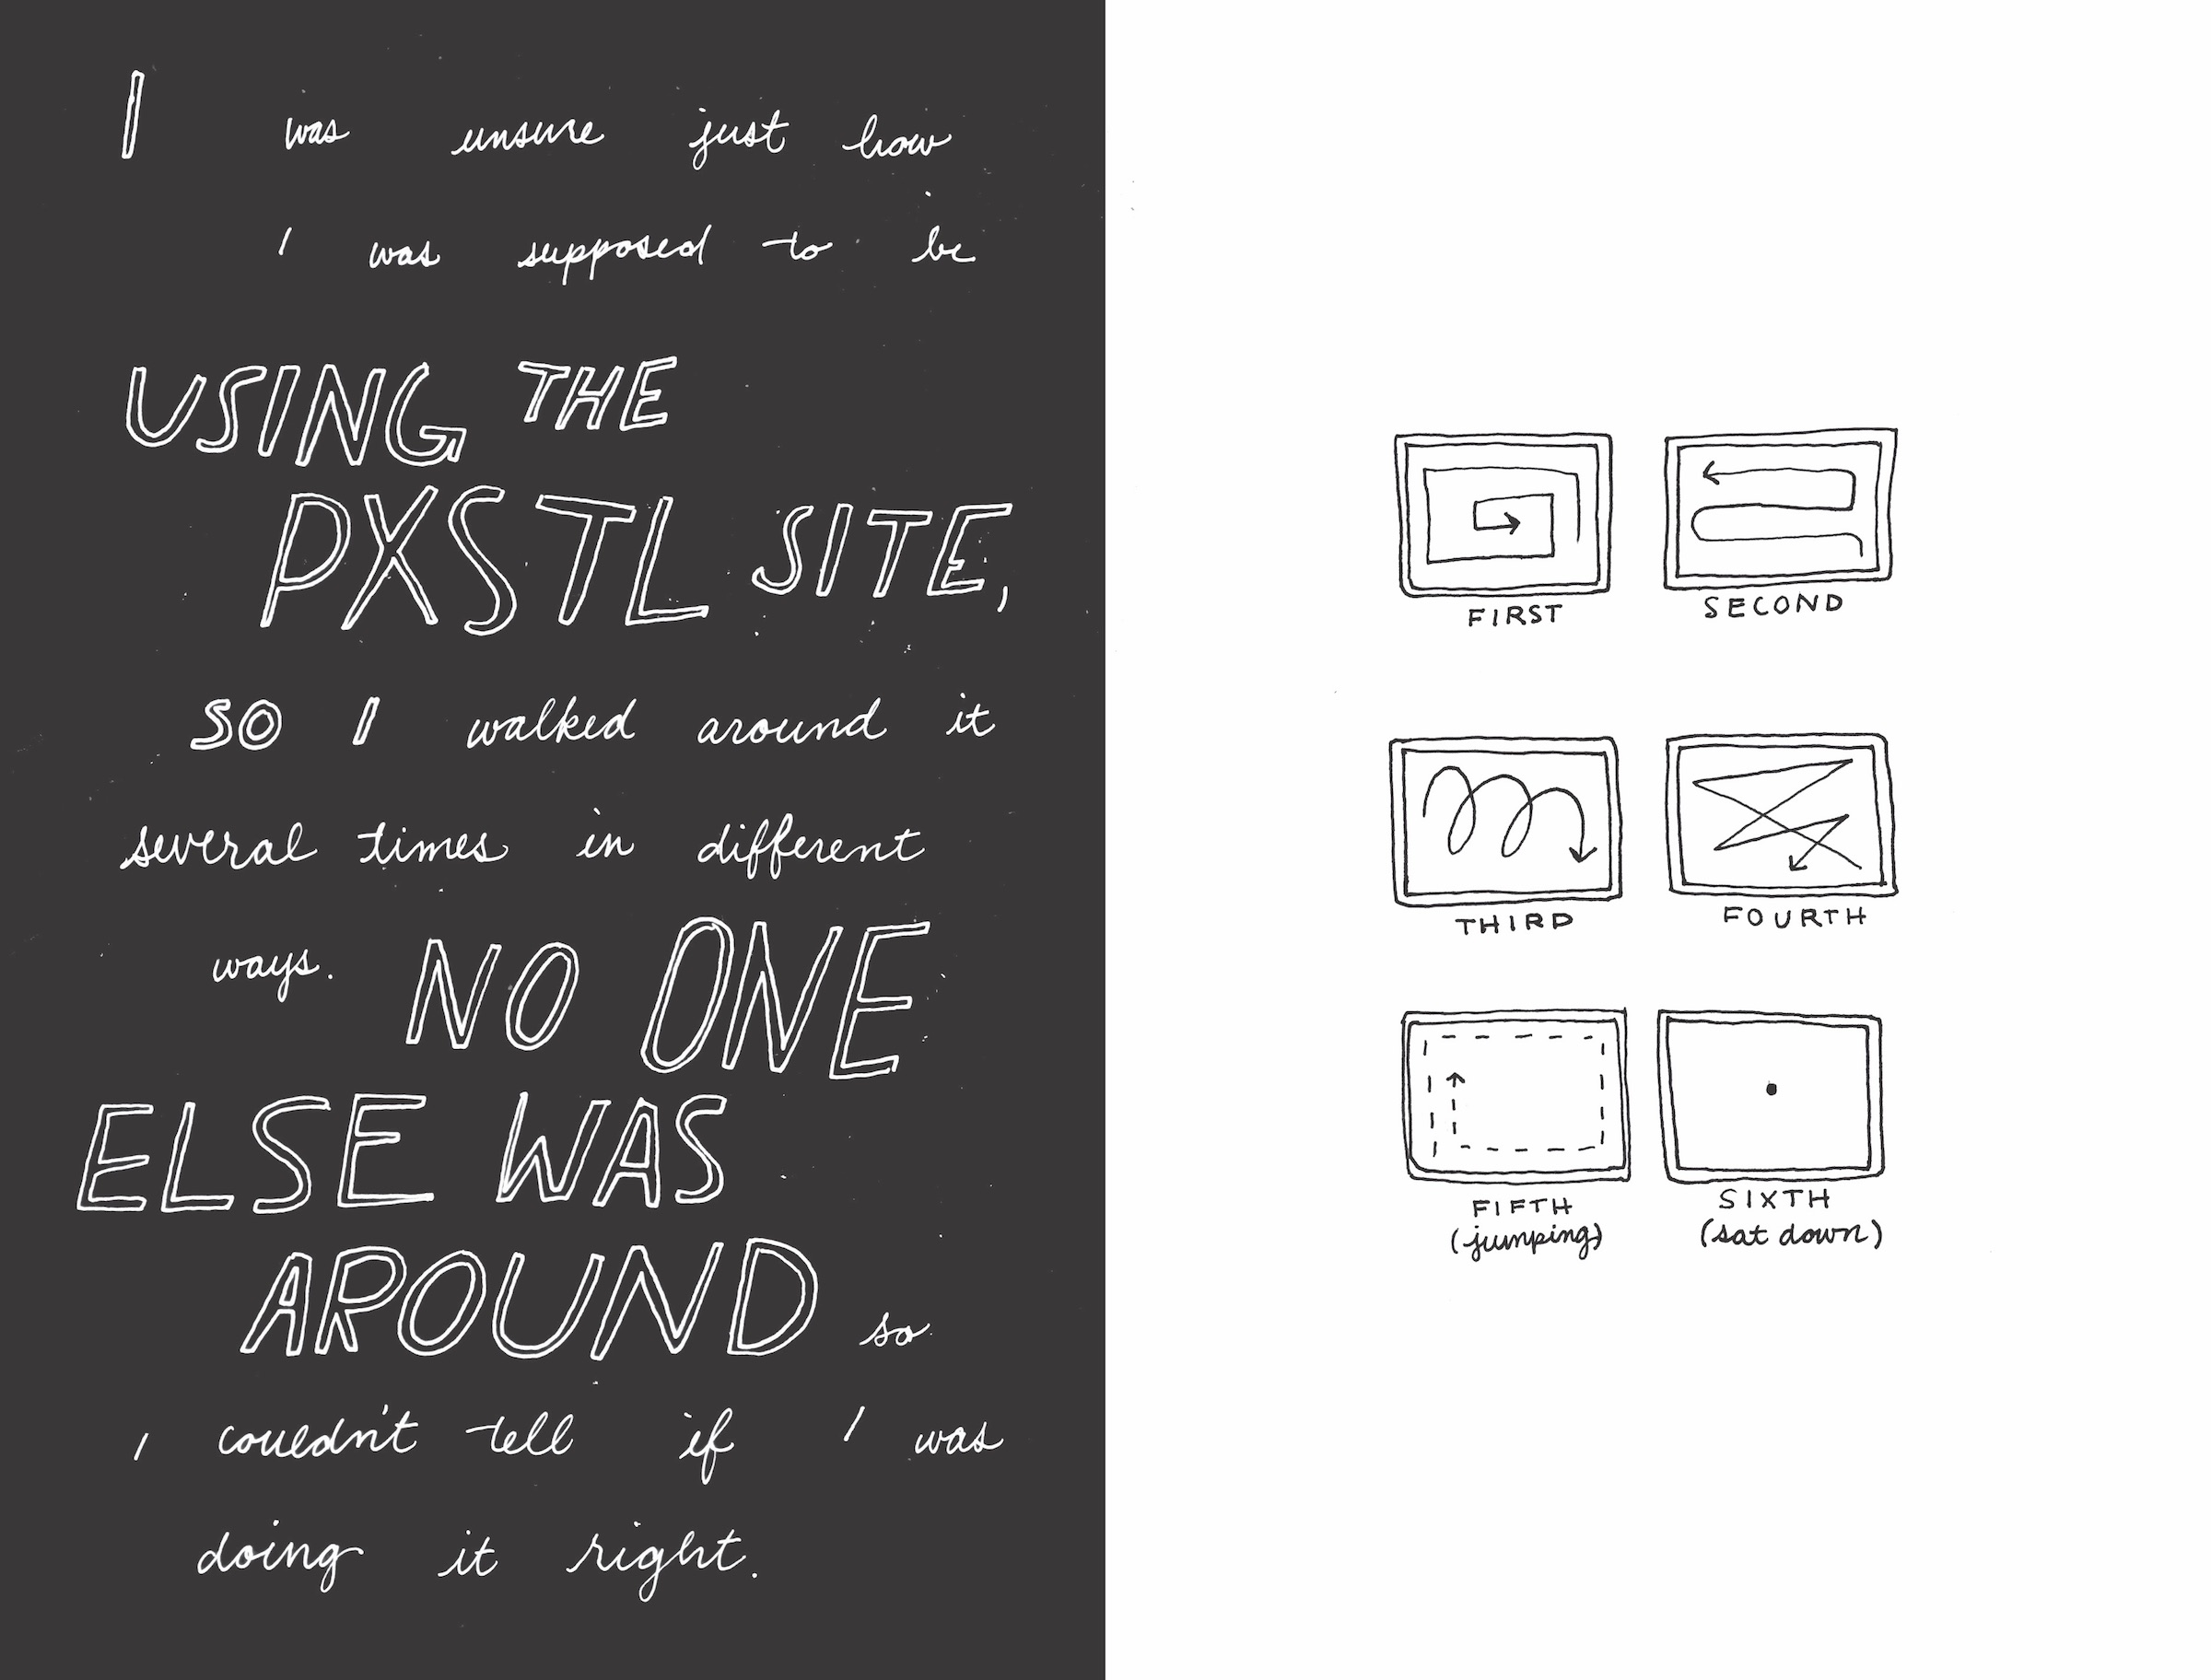 I was unsure just how
I was supposed to be
USING THE
PXSTL SITE,
SO I walked around it
several times in different
ways. NO ONE
ELSE WAS
AROUND so
I couldn't tell if I was
doing it right.
FIRST SECOND
THIRD FOURTH
FIFTH SIXTH
(jumping) (sat down)